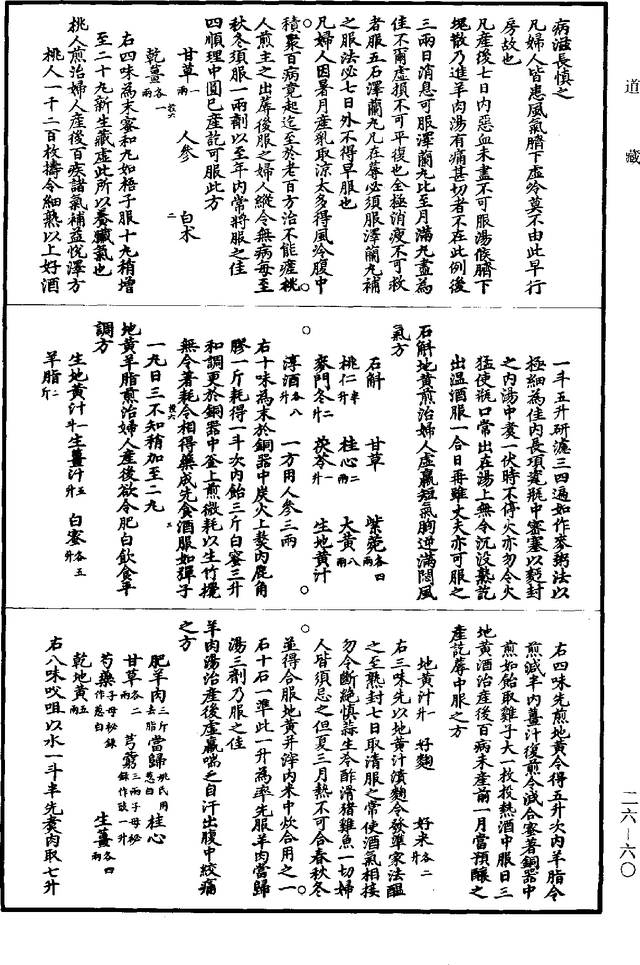 道藏
病滋長慎之
凡婦人皆患風氣臍下虛冷莫不由此早行
房故也
凡產後七日內惡血未盡不可服湯候臍下
塊散乃進羊肉湯有痛甚切者不在此例後
三兩日消息可服澤蘭丸比至月滿丸盡為
佳不爾虛損不可平復也全極消瘦不可救
者服五石澤蘭丸凡在蓐必須服澤蘭丸補
之服法必七日外不得早服也
凡婦人因暑月產乳取涼太多得風冷腹中
積聚百病競起迄至於老百方治不能瘥桃
人煎主之出蓐後服之婦人縱令無病每至
秋冬須服一兩劑以至年內常將服之佳
四順理中圓已產訖可服此方
甘草二兩 人參 白朮
乾薑各一兩
右四味為末蜜和丸如梧子服十丸稍增
至二十丸新生藏虛此所以養臟氣也
桃人煎治婦人產後百疾諸氣補益悅澤方
桃人一千二百枚擣令細熟以上好酒
一斗五升研濾三四遍如作麥粥法以
極細為佳內長項瓷瓶中密塞以麪封
之內湯中煑一伏時不停火亦勿令火
猛使瓶口常出在湯上無令沉沒熟訖
出溫酒服一合日再雖丈夫亦可服之
石斛地黃煎治婦人虛羸短氣胸逆滿悶風
氣方
石斛 甘草 紫菀各四兩
桃仁半升 桂心二兩 大黃八兩
麥門冬二升 茯苓一斤 生地黃汁
淳酒各八升 一方用人參三兩
右十味為末於銅器中炭火上熬內鹿角
膠一斤耗得一斗次內飴三斤白蜜三升
和調更於銅器中釜上煎微耗以生竹攪
無令著耗令相得藥成先食酒服如彈子
一丸日三不知稍加至二丸
地黃羊脂煎治婦人產後欲令肥白飲食平
調方
生地黃汁一斗 生薑汁五升 白蜜各五升
羊脂二斤
右四味先煎地黃令得五升次內羊脂令
煎減半內薑汁復煎令減合蜜著銅器中
煎如飴取雞子大一枚投熱酒中服日三
地黃酒治產後百病未產前一月當預釀之
產訖蓐中服之方
地黃汁一升 好麴 好米各二升
右三味先以地黃汁漬麴令發準家法醞
之至熟封七日取清服之常使酒氣相接
勿令斷絶慎蒜生冷酢滑豬雞魚一切婦
人皆須忌之但夏三月熱不可合春秋冬
並得合服地黃并滓內米中炊合用之一
石十石一準此一升為率先服羊肉當歸
湯三劑乃服之佳
羊肉湯治產後虛羸喘乏自汗出腹中絞痛
之方
肥羊肉三斤去脂 當歸姚氏用葱白 桂心
甘草各二兩 芎藭三兩子母秘錄作豉一升
芍藥子母秘錄作葱白 生薑各四兩
乾地黃五兩
右八味㕮咀以水一斗半先煑肉取七升
二六-六〇